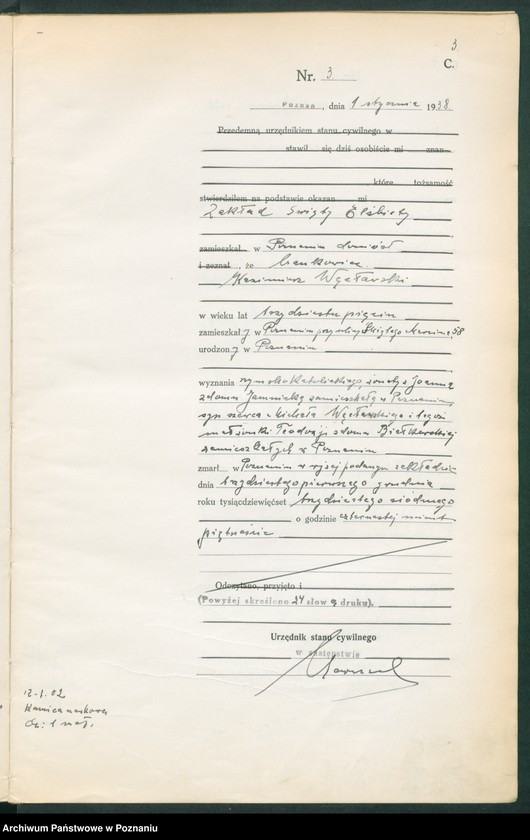 3
C.
Nr. 3
Poznań, dnia 1 stycznia 1938
Przedemną urzędnikiem stanu cywilnego w
stawił się dziś osobiście mi znan
które tożsamość
stwierdziłem na podstawie okazan mi
Zakład Święty Elżbiety
zamieszkał w Poznaniu doniósł
i zeznał, że
Kazimierz Węcławski
w wieku lat trzydziestu pięciu
zamieszkały w Poznaniu przy ulicy Świętego Marcina 58
urodzony w Poznaniu
wyznania rzymskokatolickiego, żonaty z Joanną
z domu zamieszkałą w Poznaniu
syn szewca Michała Węcławskiego i tegoż
małżonki z domu
zamieszkałych w Poznaniu
zmarł w Poznaniu w wyżej podanym zakładzie
dnia trzydziestego pierwszego grudnia
roku tysiącdziewięćset trzydziestego siódmego
o godzinie czternastej minut
piętnaście
Odczytano, przyjęto i
(Powyżej skreślono 24 słow g druku).
Urzędnik stanu cywilnego
w zastępstwie
12-1.02
Archiwum Państwowe w Poznaniu